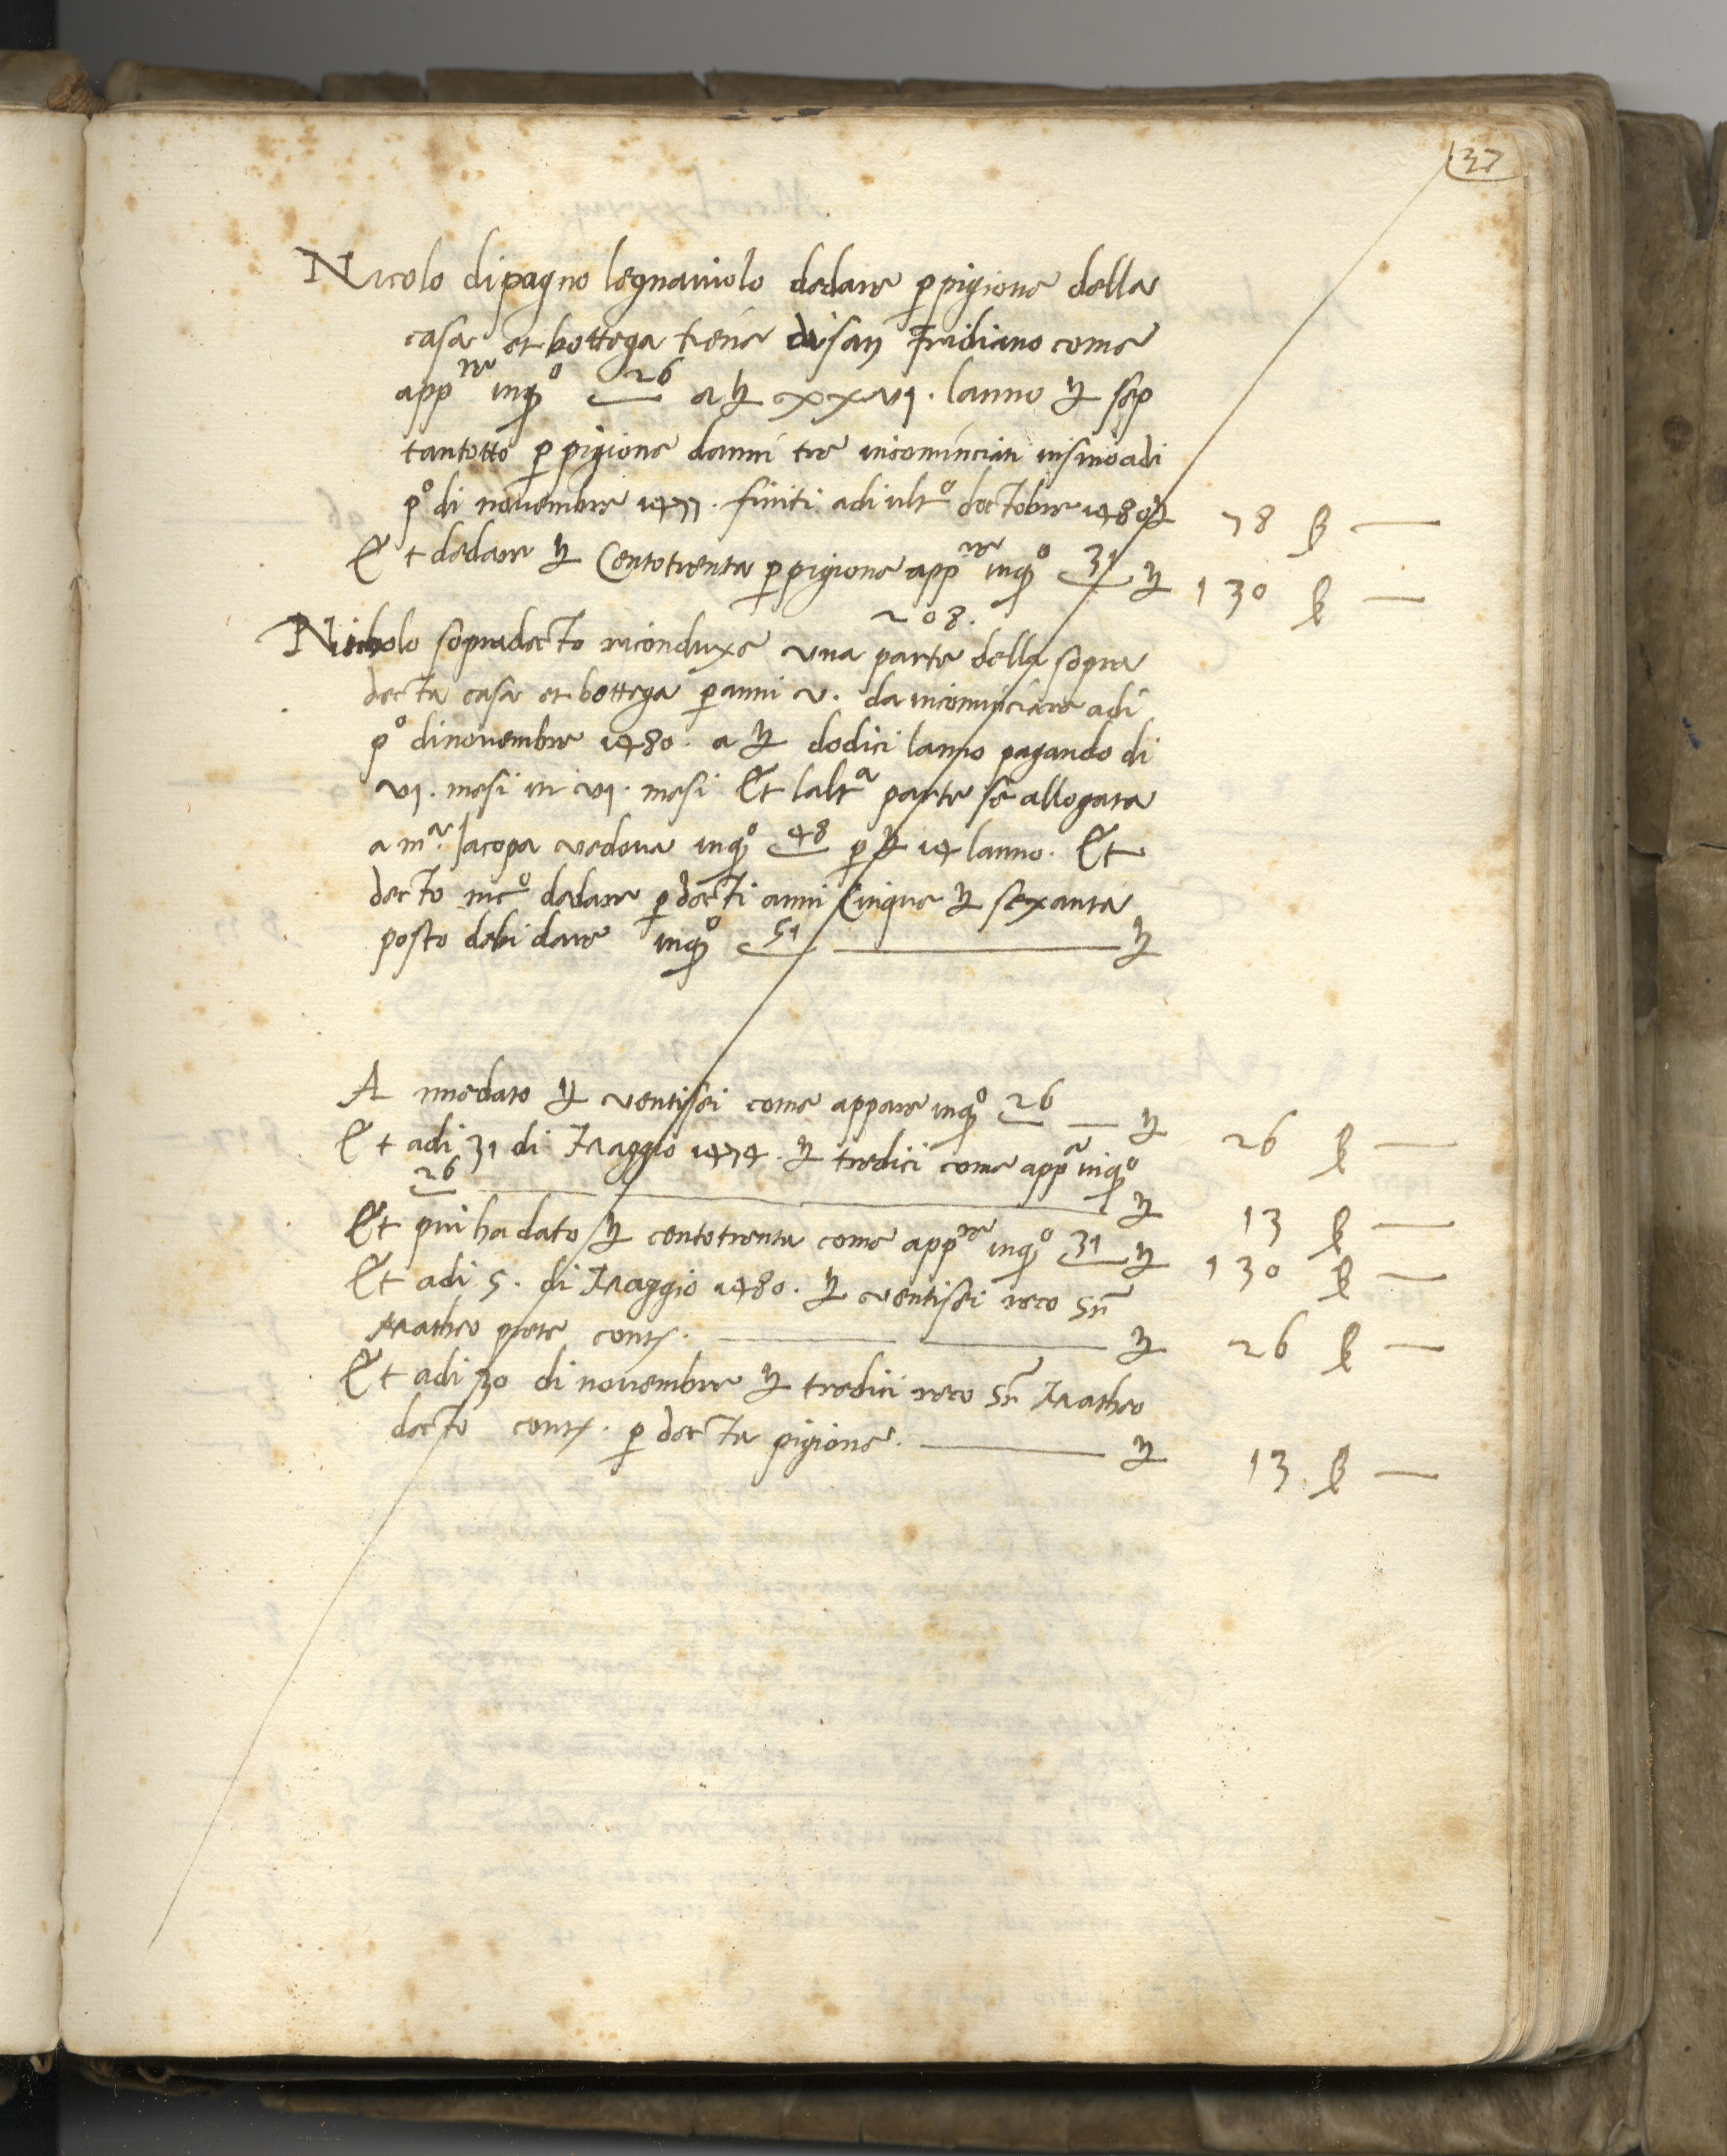 37
Nicolo dipagno legnaiuolo dedare p pigione della
casa et bottega tiene di san Fridiano come
app^re inq^o 26 a £ xxvi. lanno £ sep
tantotto p pigione danni tre incominciati insino adi
p^o di novembre 1477. finiti adi ult^o doctobre 1480 £ 78 ß —
Et dedare £ Centotrenta p pigione app^re inq^o 31 £ 130 ß —
208.
Nicholo sopradecto riconduxe una parte della sopra
decta casa et bottega p anni v. da incominciare adi
p^o dinovembre 1480. a £ dodici lanno pagando di
vi. mesi in vi. mesi Et lalt^a parte se allogata
a m^a Jacopa vedova inq^o 48 p £ 14 lanno. Et
decto nic^o dedare p decti anni Cinque £ sexanta
posto debi dare inq^o 51 — £
A nnedato £ ventisei come appare inq^o 26 — £ 26 ß —
Et adi 31 di Maggio 1474. £ tredici come app^a inq^o
26 — £ 13 ß —
Et piu ha dato £ centotrenta come app^re inq^o 31 £ 130 ß —
Et adi 5. di Maggio 1480. £ ventisei reco Sr
Matheo prete cont. — £ 26 ß —
Et adi 30 di novembre £ tredici reco Sr Matheo
decto cont. p decta pigione. — £ 13 ß —